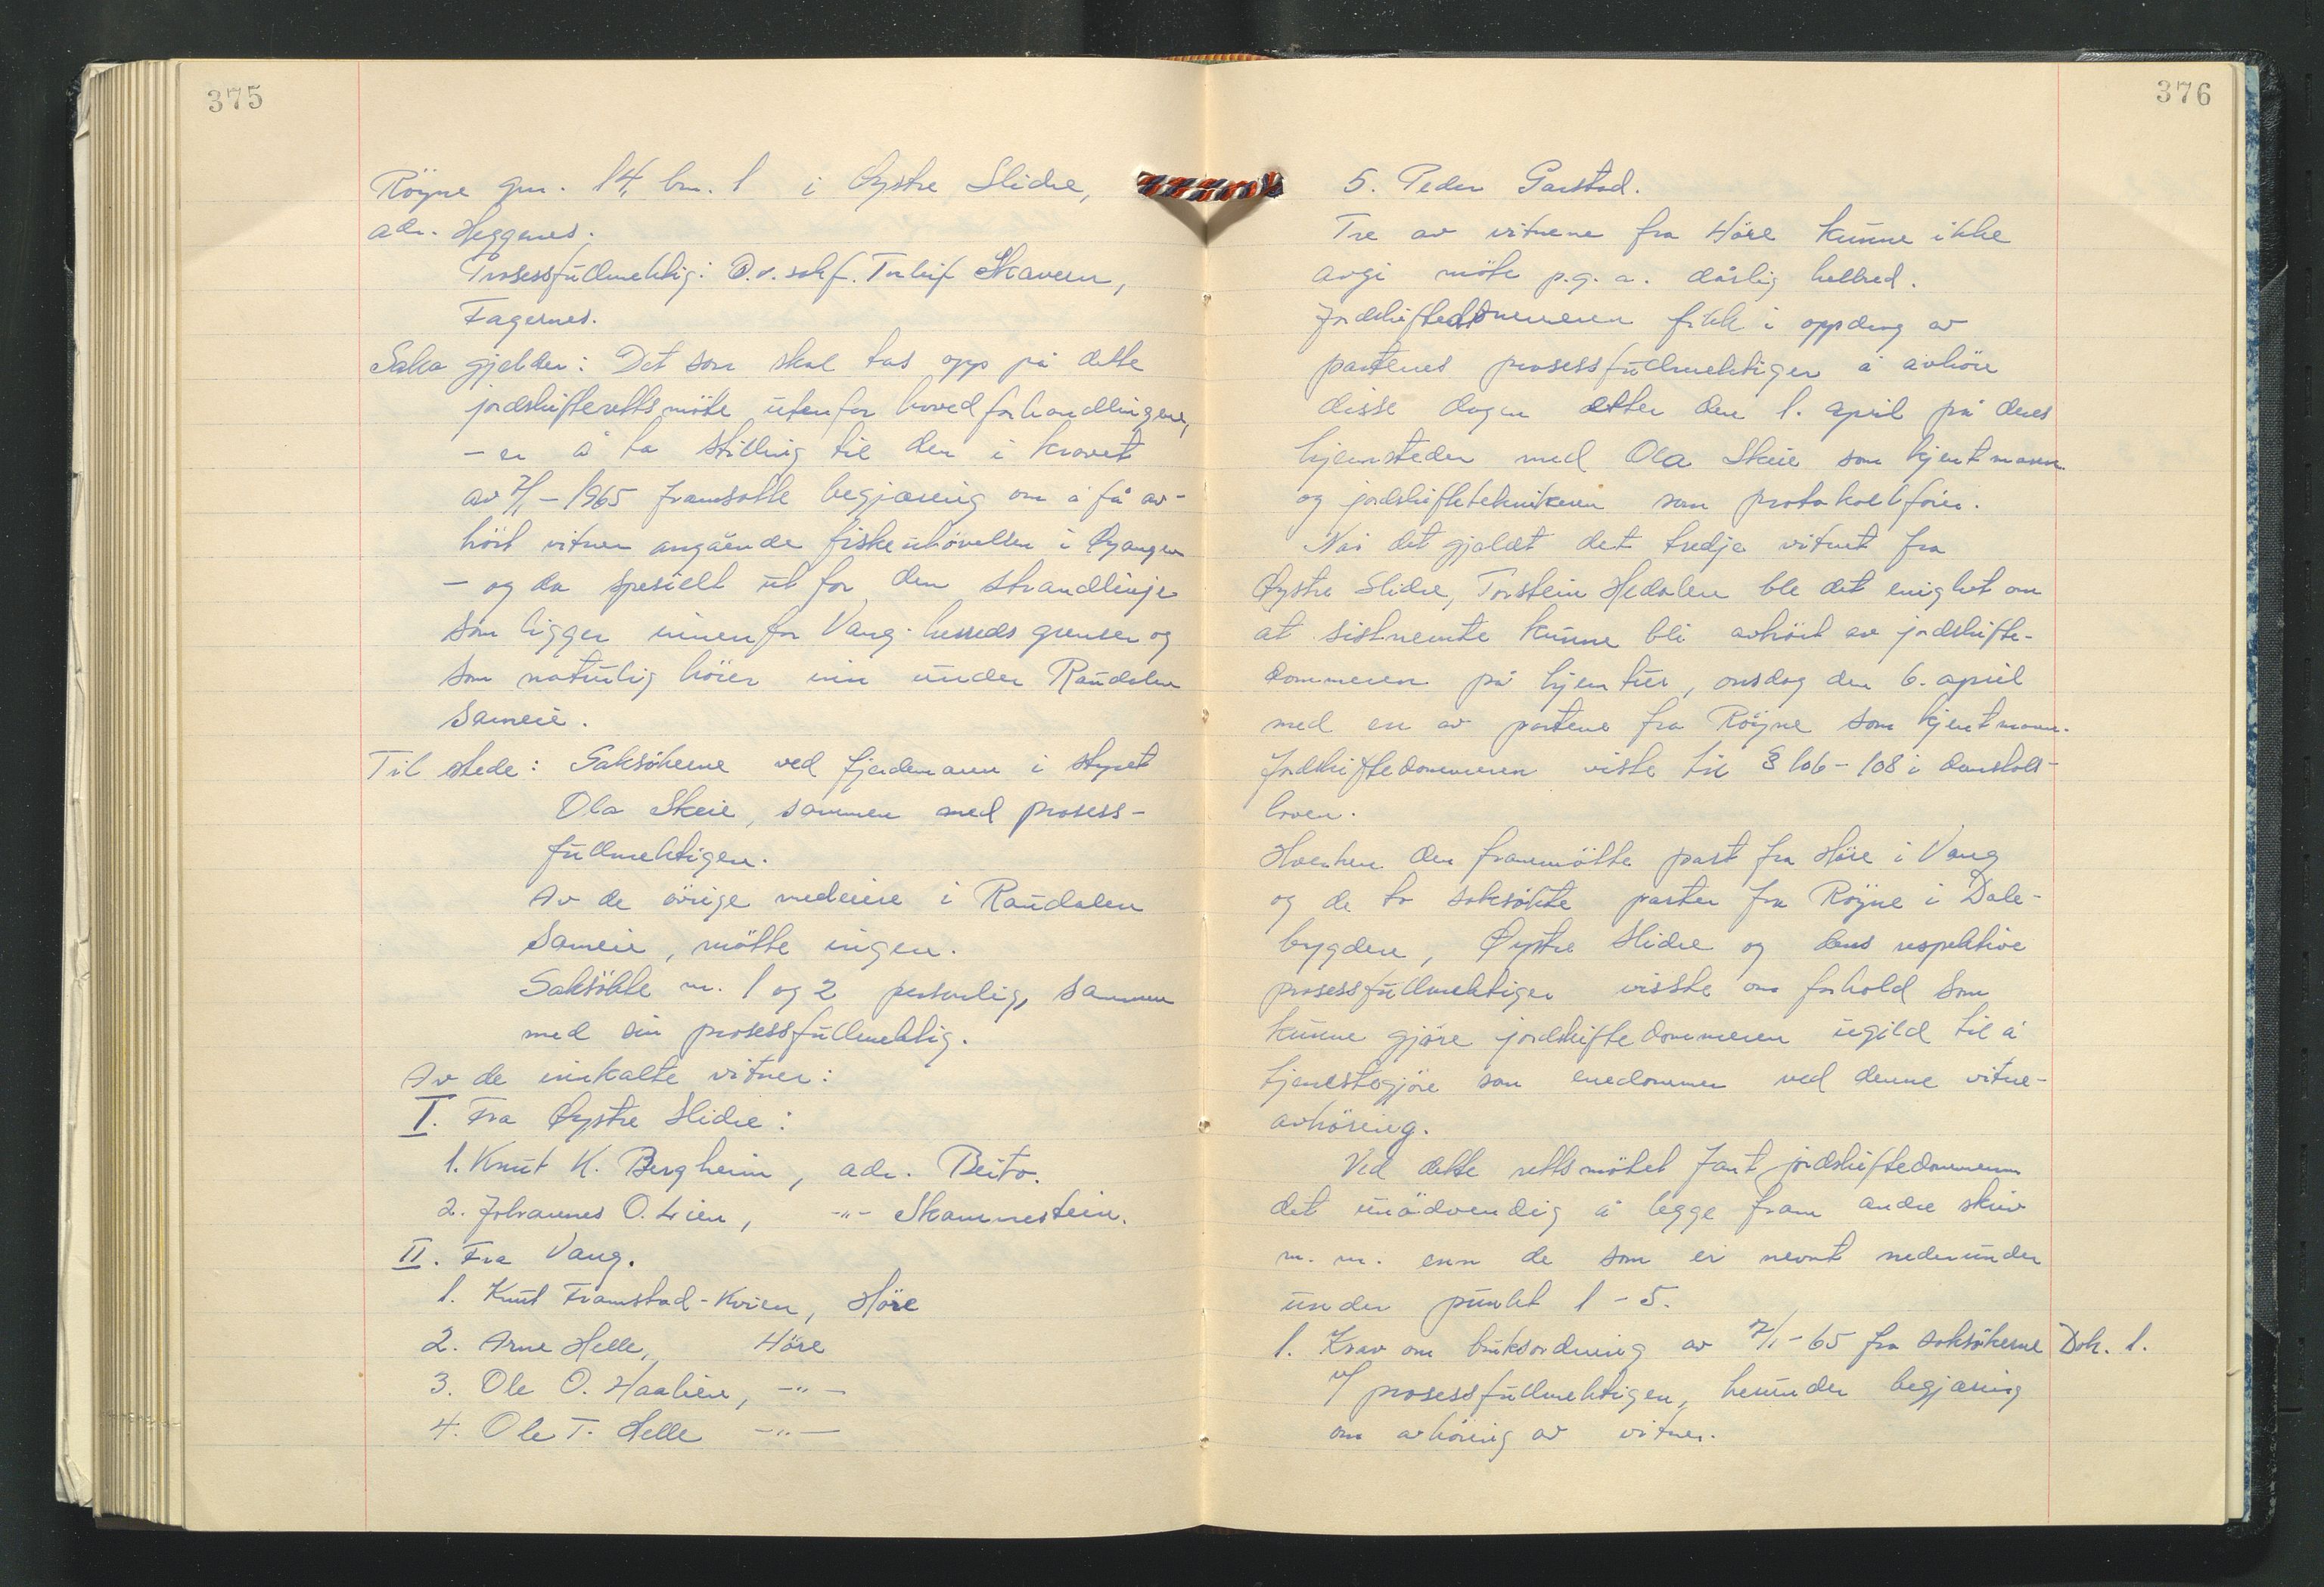 375
Röyne gnr. 14, bnr. 1 i Øystre Slidre,
adr. Heggenes.
Prosessfullmektig: O.r.sakf. Torleif Skaveen,
Fagernes.
Saka gjelder: Det som skal tas opp på dette
jordskifterettsmöte utenfor hovedforhandlingene,
- er å ta stilling til den i kravet
av 7/1-1965 framsatte begjæring om å få av-
hört vitner angående fiskeutövelsen i Øyangen
- og da spesielt ut for den strandlinje
som ligger innenfor Vang herreds grenser og
som naturlig hörer inn under Raudalen
Sameie.
Til stede: Saksökerne ved fjerdemann i styret
Ola Skeie, sammen med prosess-
fullmektigen.
Av de övrige medeiere i Raudalen
Sameie, mötte ingen.
Saksökte nr. 1 og 2 personlig, sammen
med sin prosessfullmektig.
Av de innkalte vitner:
I. Fra Øystre Slidre:
1. Knut K. Bergheim, adr. Beito.
2. Johannes O. Lien, -"- Skammestein.
II. Fra Vang.
1. Knut Framstad-Kvien, Höre
2. Arne Helle, Höre
3. Ole O. Haalien, -"-
4. Ole T. Helle -"-
376
5. Peder Garstad.
Tre av vitnene fra Höre kunne ikke
avgi möte p.g.a. dårlig helbred.
Jordskiftedommeren fikk i oppdrag av
partenes prosessfullmektiger å avhöre
disse dagen etter den 1. april på deres
hjemsteder med Ola Skeie som kjentmann
og jordskifteteknikeren som protokollförer.
Når det gjaldt det tredje vitnet fra
Øystre Slidre, Torstein Hedalen ble det enighet om
at sistnemte kunne bli avhört av jordskifte-
dommeren på hjemtur, onsdag den 6. april
med en av partene fra Röyne som kjentmann.
Jordskiftedommeren viste til § 106-108 i domstols-
loven.
Hverken den frammötte part fra Höre i Vang
og de to saksökte parter fra Röyne i Dale-
bygden, Øystre Slidre og deres respektive
prosessfullmektiger visste om forhold som
kunne gjöre jordskiftedommeren ugild til å
tjenestegjöre som enedommer ved denne vitne-
avhöring.
Ved dette rettsmötet fant jordskiftedommeren
det unödvendig å legge fram andre skriv
m.m. enn de som er nevnt nedenunder
under punkt 1-5.
1. Krav om bruksordning av 7/1-65 fra saksökerne Dok. 1.
v/ prosessfullmektigen, herunder begjæring
om avhöring av vitner.